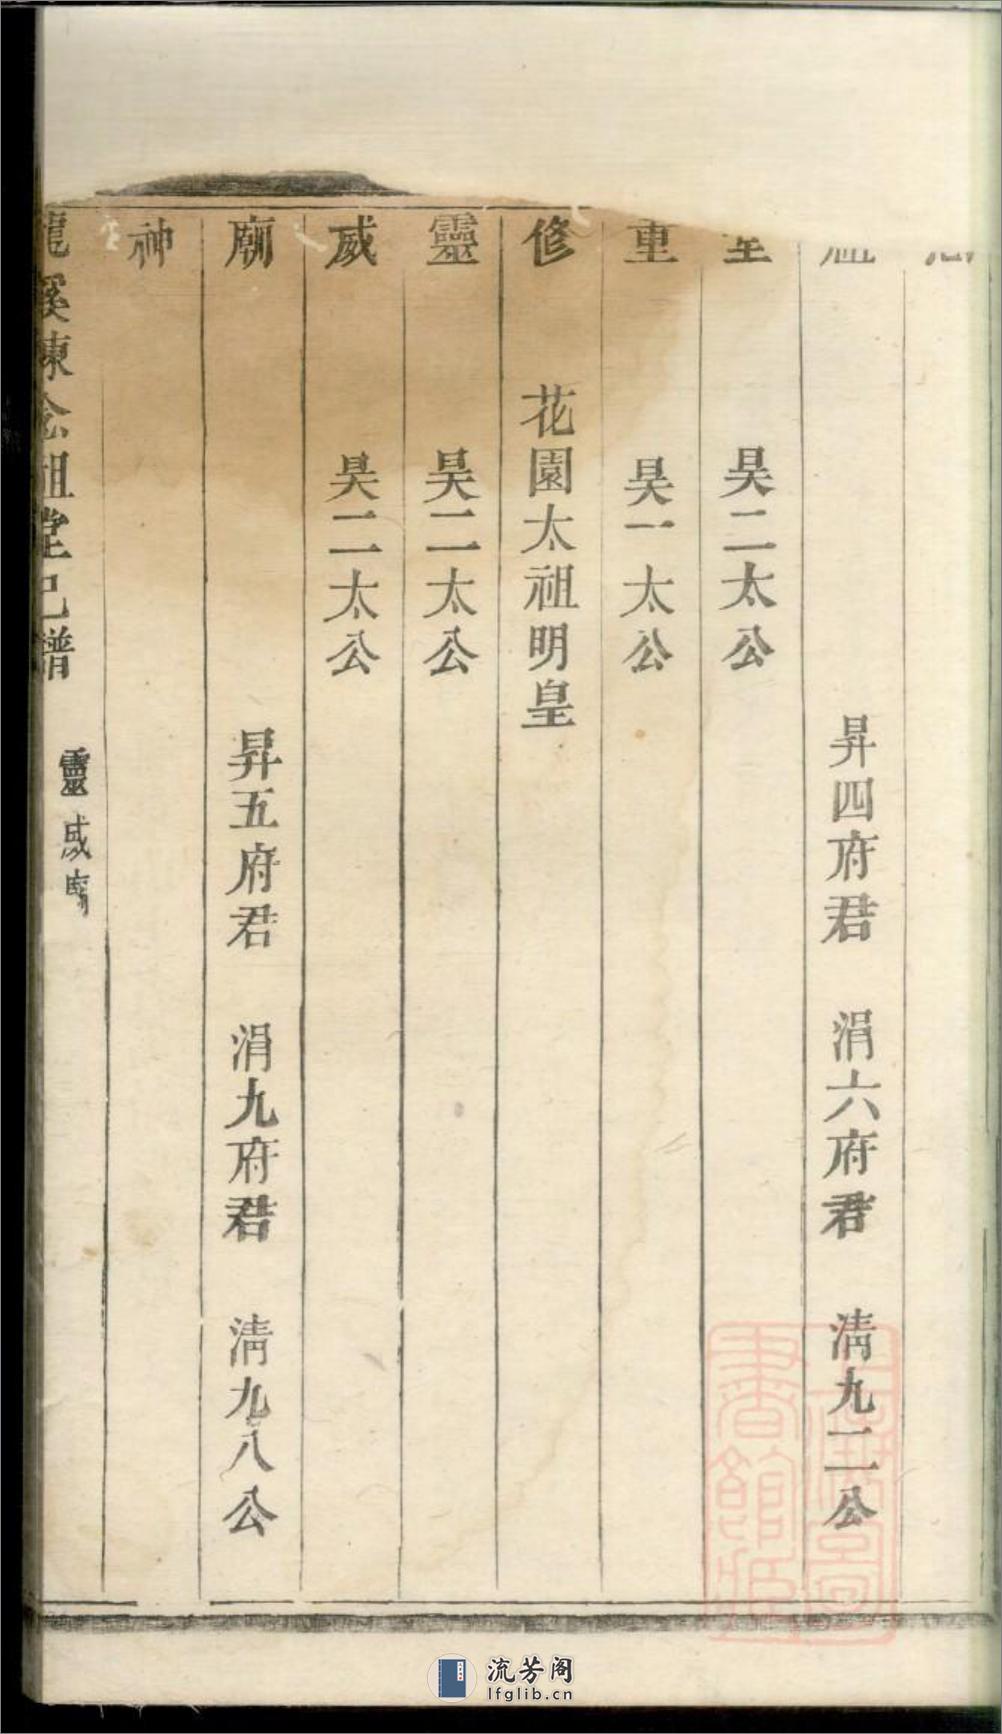 昇四府君　涓六府君　清九二公
昊二太公
重　昊一太公
修　花園太祖明皇
靈　昊二太公
威　昊二太公
廟　昇五府君　涓九府君　清九八公
神
祖堂已譜　靈威廟
流芳阁
lfglib.cn